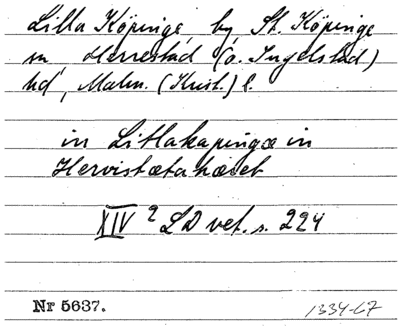 Lilla Köpinge, by, St. Köpinge
sn, Herrestad (o. Ingelstad)
hd, Malm. (Krist.) l.
in Litlakapingæ in
Hervistætahæret
XIV 2 LD vet. s. 224
Nr 5637.
1334-67